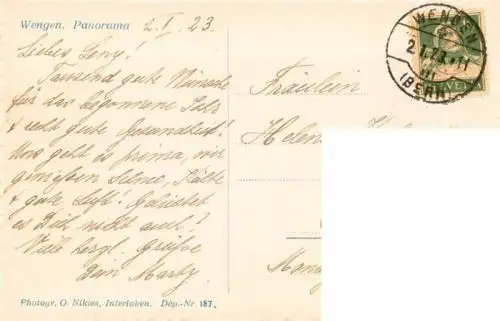 Wengen. Panorama 2. I. 23.
Liebes Leny!
Tausend gute Wünsche
für das begonnene Jahr
& recht gute Gesundheit!
Uns geht es prima, wir
geniessen Sonne, Kälte
& gute Luft!
es Dich nicht auch?
Viele herzl. Grüsse
Dein
Photogr. O. Nikles, Interlaken. Dép.-Nr. 187.
WENGEN
(BERN)
Fräulein